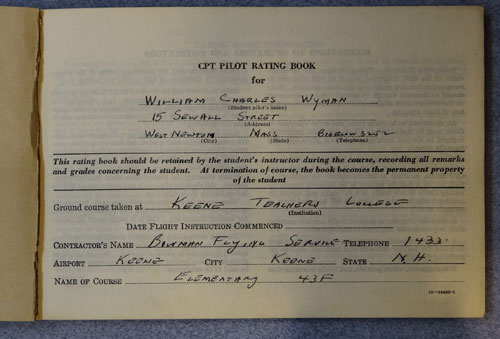 CPT PILOT RATING BOOK
for
WILLIAM CHARLES WYMAN
(Student pilot's name)
15 SEWALL STREET
(Address)
WEST NEWTON MASS BIGELOW 3252
(City) (State) (Telephone)
This rating book should be retained by the student's instructor during the course, recording all remarks
and grades concerning the student. At termination of course, the book becomes the permanent property
of the student
Ground course taken at KEENE TEACHERS COLLEGE
(Institution)
DATE FLIGHT INSTRUCTION COMMENCED
CONTRACTOR'S NAME BOWMAN FLYING SERVICE TELEPHONE 1433
AIRPORT KEENE CITY KEENE STATE N.H.
NAME OF COURSE ELEMENTARY 43F